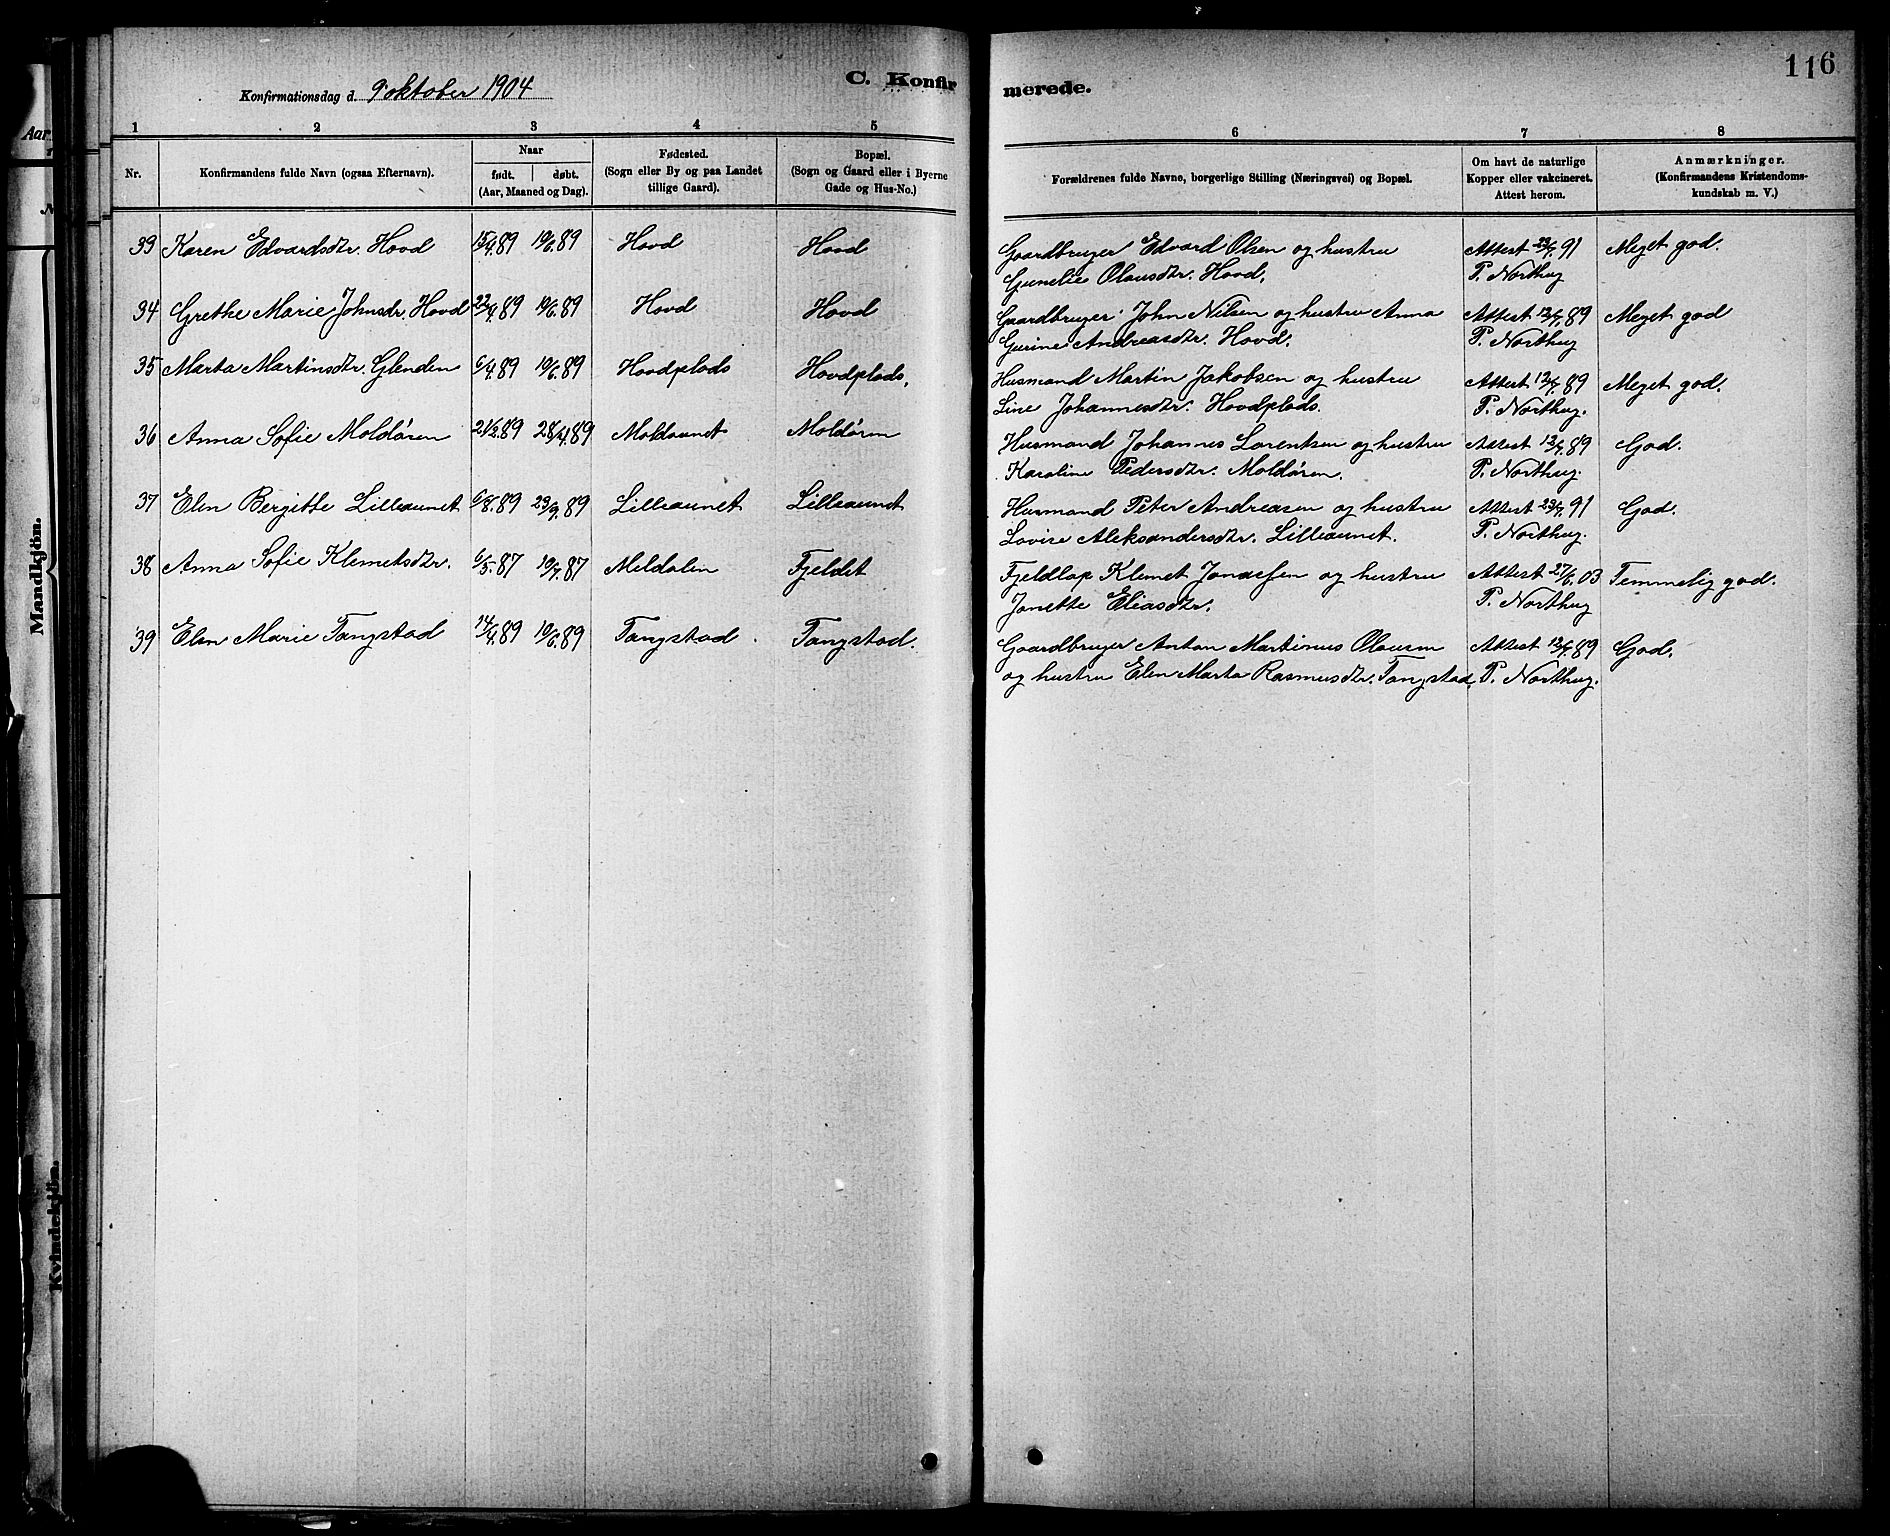 116
Konfirmationsdag d. 9' oktober 1904
C. Konfirmerede.
1 2 3 4 5 6 7 8
Nr. Konfirmandens fulde Navn (ogsaa Efternavn). Naar født. døbt. (Aar, Maaned og Dag). Fødested. (Sogn eller By og paa Landet tillige Gaard). Bopæl. (Sogn og Gaard eller i Byerne Gade og Hus-No.) Forældrenes fulde Navne, borgerlige Stilling (Næringsvei) og Bopæl. Om havt de naturlige Kopper eller vakcineret. Attest herom. Anmærkninger. (Konfirmandens Kristendomskundskab m. V.)
33 Karen Edvardsdtr. Hovd 15/4 89 10/6 89 Hovd Hovd Gaardbruger Edvard Olsen og hustru Attest 91 Meget god.
Gunelie Olausdtr. Hovd. P. Northug
34 Grethe Marie Johnsdr. Hovd 22/4 89 10/6 89 Hovd Hovd Gaardbruger John Nilsen og hustru Anna Attest 89 Meget god
Gurine Andreasdtr. Hovd. P. Northug
35 Marta Martinsdtr. Glenden 6/4 89 10/6 89 Hovdplads Hovdplads. Husmand Martin Jakobsen og hustru Attest 89 Meget god.
Line Johannesdtr. Hovdplads. P. Northug.
36 Anna Sofie Moldören 89 28/4 89 Moldaunet Moldören Husmand Johannes Lorentsen og hustru Attest 89 God.
Karoline Pedersdtr. Moldören. P. Northug.
37 Elen Bergitte Lilleaunet 6/8 89 23/9 89 Lilleaunet Lilleaunet Husmand Peter Andreasen og hustru Attest 91 God.
Lovise Aleksandersdtr. Lilleaunet. P. Northug.
38 Anna Sofie Klemetsdtr. 6/5 87 10/7 87 Meldalen Fjeldet Fjeldlap Klemet Jonassen og hustru Attest 27/6 03 Temmelig god.
Jonette Eliasdtr. P. Northug
39 Elen Marie Tangstad 14/4 89 10/6 89 Tangstad Tangstad. Gaardbruger Anton Martinus Olausen Attest 89 God.
og hustru Elen Marta Rasmusdtr. Tangstad. P. Northug.
Aar
Mandkjön.
Kvindekjön.